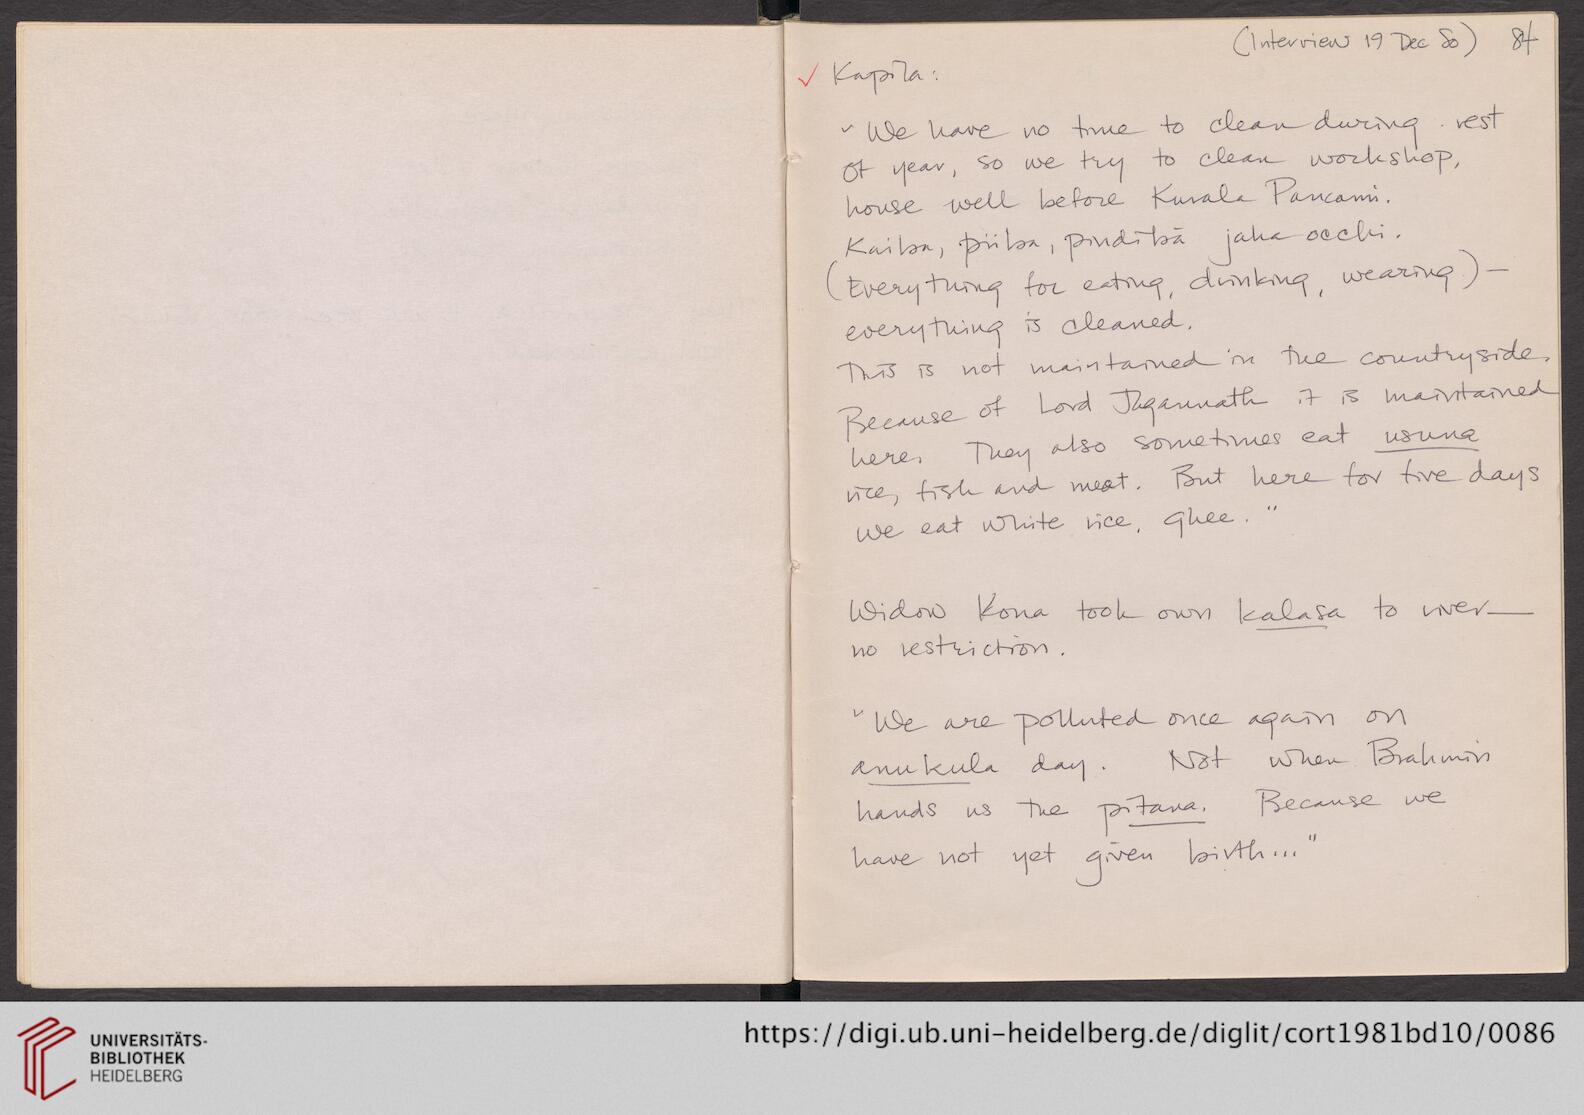 (Interview 19 Dec 80) 84
✓ Kapila:
"We have no time to clean during rest
of year, so we try to clean workshop,
house well before Kurala Pancami.
Kaiba, piiba, pindibā jaha occhi.
(Everything for eating, drinking, wearing) —
everything is cleaned.
This is not maintained in the countryside.
Because of Lord Jagannath it is maintained
here. They also sometimes eat usuna
rice, fish and meat. But here for five days
we eat white rice, ghee."
Widow Kona took own kalasa to river —
no restriction.
"We are polluted once again on
anukula day. Not when Brahmin
hands us the pitana. Because we
have not yet given birth..."
UNIVERSITÄTS-
BIBLIOTHEK
HEIDELBERG
https://digi.ub.uni-heidelberg.de/diglit/cort1981bd10/0086